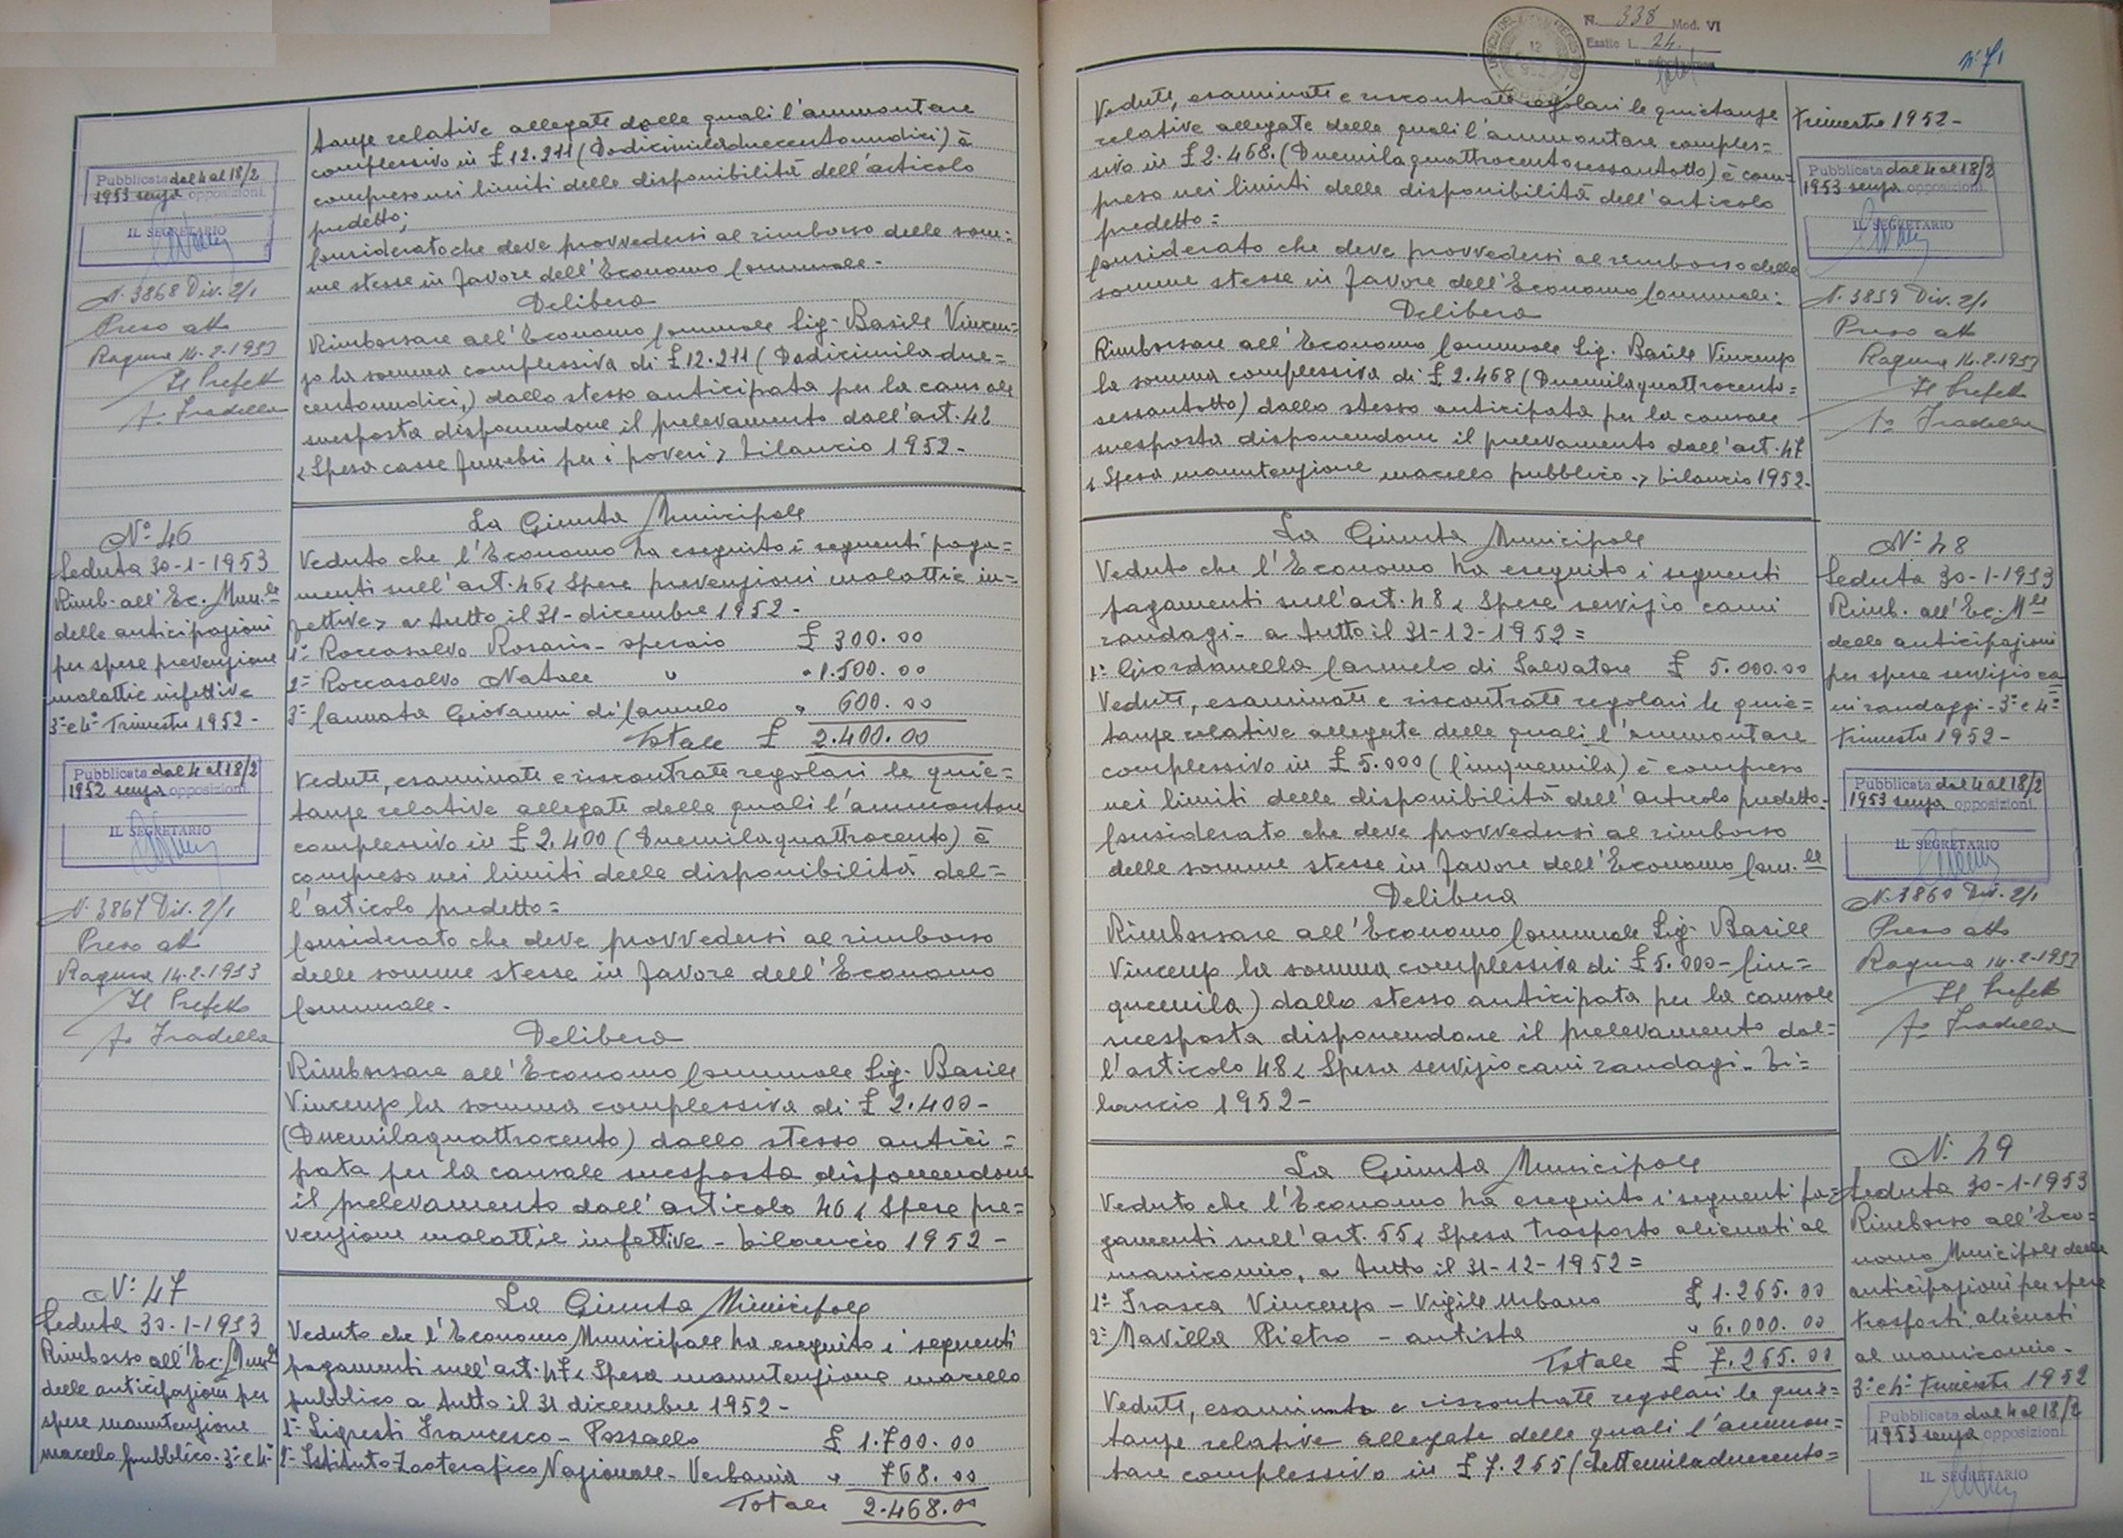 tanze relative allegate delle quali l'ammontare
complessivo in £ 12.211 (Dodicimiladuecentoundici) è
compreso nei limiti delle disponibilità dell'articolo
predetto;
Considerato che deve provvedersi al rimborso delle som=
me stesse in favore dell'Economo Comunale-
Delibera
Rimborsare all'Economo Comunale Sig. Basile Vincen=
zo la somma complessiva di £ 12.211 (Dodicimiladue=
centoundici,) dallo stesso anticipata per la causale
suesposta disponendone il prelevamento dall'art. 42
"Spesa casse funebri per i poveri" bilancio 1952-
Pubblicata dal 4 al 18/2
1953 senza opposizioni.
IL SEGRETARIO
N. 3868 Div. 2/1
Preso atto
Ragusa 14-2-1953
Il Prefetto
fo Fradella
Nº 46
Seduta 30-1-1953
Rimb. all'Ec. Mun.le
delle anticipazioni
per spese prevenzione
malattie infettive
3º e 4º Trimestre 1952-
Pubblicata dal 4 al 18/2
1952 senza opposizioni.
IL SEGRETARIO
N. 3867 Div. 2/1
Preso atto
Ragusa 14-2-1953
Il Prefetto
fo Fradella
La Giunta Municipale
Veduto che l'Economo ha eseguito i seguenti paga=
menti sull'art. 46 "Spese prevenzioni malattie in=
fettive" a tutto il 31-dicembre 1952-
1º Roccasalvo Rosario- operaio £ 300.00
2º Roccasalvo Natale " " 1.500.00
3º Cannata Giovanni di Carmelo " 600.00
Totale £ 2.400.00
Vedute, esaminate e riscontrate regolari le quie=
tanze relative allegate delle quali l'ammontare
complessivo in £ 2.400 (Duemilaquattrocento) è
compreso nei limiti delle disponibilità del=
l'articolo predetto=
Considerato che deve provvedersi al rimborso
delle somme stesse in favore dell'Economo
Comunale-
Delibera
Rimborsare all'Economo Comunale Sig. Basile
Vincenzo la somma complessiva di £ 2.400-
(Duemilaquattrocento) dallo stesso antici=
pata per la causale suesposta disponendone
il prelevamento dall'articolo 46 "Spese pre=
venzione malattie infettive- bilancio 1952-
Nº 47
Seduta 30-1-1953
Rimborso all'Ec. Mun.le
delle anticipazioni per
spese manutenzione
macello pubblico-3º e 4º
La Giunta Municipale
Veduto che l'Economo Municipale ha eseguito i seguenti
pagamenti sull'art. 47 "Spesa manutenzione macello
pubblico a tutto il 31 dicembre 1952-
1º Ligresti Francesco- Pozzallo £ 1.700.00
2º Istituto Zooterapico Nazionale-Verbania " 768.00
Totale 2.468.00
N. 338 Mod. VI
Esatte L. 24.
Nº 71
Vedute, esaminate e riscontrate regolari le quietanze
relative allegate delle quali l'ammontare comples=
sivo in £ 2.468. (Duemilaquattrocentosessantotto) è com=
preso nei limiti delle disponibilità dell'articolo
predetto=
Considerato che deve provvedersi al rimborso delle
somme stesse in favore dell'Economo Comunale:
Delibera
Rimborsare all'Economo Comunale Sig. Basile Vincenzo
la somma complessiva di £ 2.468 (Duemilaquattrocento=
sessantotto) dallo stesso anticipata per la causale
suesposta disponendone il prelevamento dall'art. 47
"Spesa manutenzione macello pubblico-" bilancio 1952-
Trimestre 1952-
Pubblicata dal 4 al 18/2
1953 senza opposizioni.
IL SEGRETARIO
N. 3859 Div. 2/1
Preso atto
Ragusa 14-2-1953
Il Prefetto
fo Fradella
La Giunta Municipale
Veduto che l'Economo ha eseguito i seguenti
pagamenti sull'art. 48 "Spese servizio cani
randagi- a tutto il 31-12-1952=
1º Giordanella Carmelo di Salvatore £ 5.000.00
Vedute, esaminate e riscontrate regolari le quie=
tanze relative allegate delle quali l'ammontare
complessivo in £ 5.000 (Cinquemila) è compreso
nei limiti delle disponibilità dell'articolo predetto-
Considerato che deve provvedersi al rimborso
delle somme stesse in favore dell'Economo Com.le
Delibera
Rimborsare all'Economo Comunale Sig. Basile
Vincenzo la somma complessiva di £ 5.000- Cin=
quemila) dallo stesso anticipata per la causale
suesposta disponendone il prelevamento dal=
l'articolo 48 "Spesa servizio cani randagi- bi=
lancio 1952-
Nº 48
Seduta 30-1-1953
Rimb. all'Ec. M.le
delle anticipazioni
per spese servizio ca=
ni randaggi- 3º e 4º
trimestre 1952-
Pubblicata dal 4 al 18/2
1953 senza opposizioni.
IL SEGRETARIO
N. 3860 Div. 2/1
Preso atto
Ragusa 14-2-1953
Il Prefetto
fo Fradella
La Giunta Municipale
Veduto che l'Economo ha eseguito i seguenti pa=
gamenti sull'art. 55 "Spesa trasporto alienati al
manicomio, a tutto il 31-12-1952=
1º Frasca Vincenzo- Vigile Urbano £ 1.265.00
2º Navilla Pietro - autista " 6.000.00
Totale £ 7.265.00
Vedute, esaminate e riscontrate regolari le quie=
tanze relative allegate delle quali l'ammon=
tare complessivo in £ 7.265 (Settemiladuecento=
N. 49
Seduta 30-1-1953
Rimborso all'Eco=
nomo Municipale delle
anticipazioni per spese
trasporti alienati
al manicomio-
3º e 4º Trimestre 1952
Pubblicata dal 4 al 18/2
1953 senza opposizioni.
IL SEGRETARIO